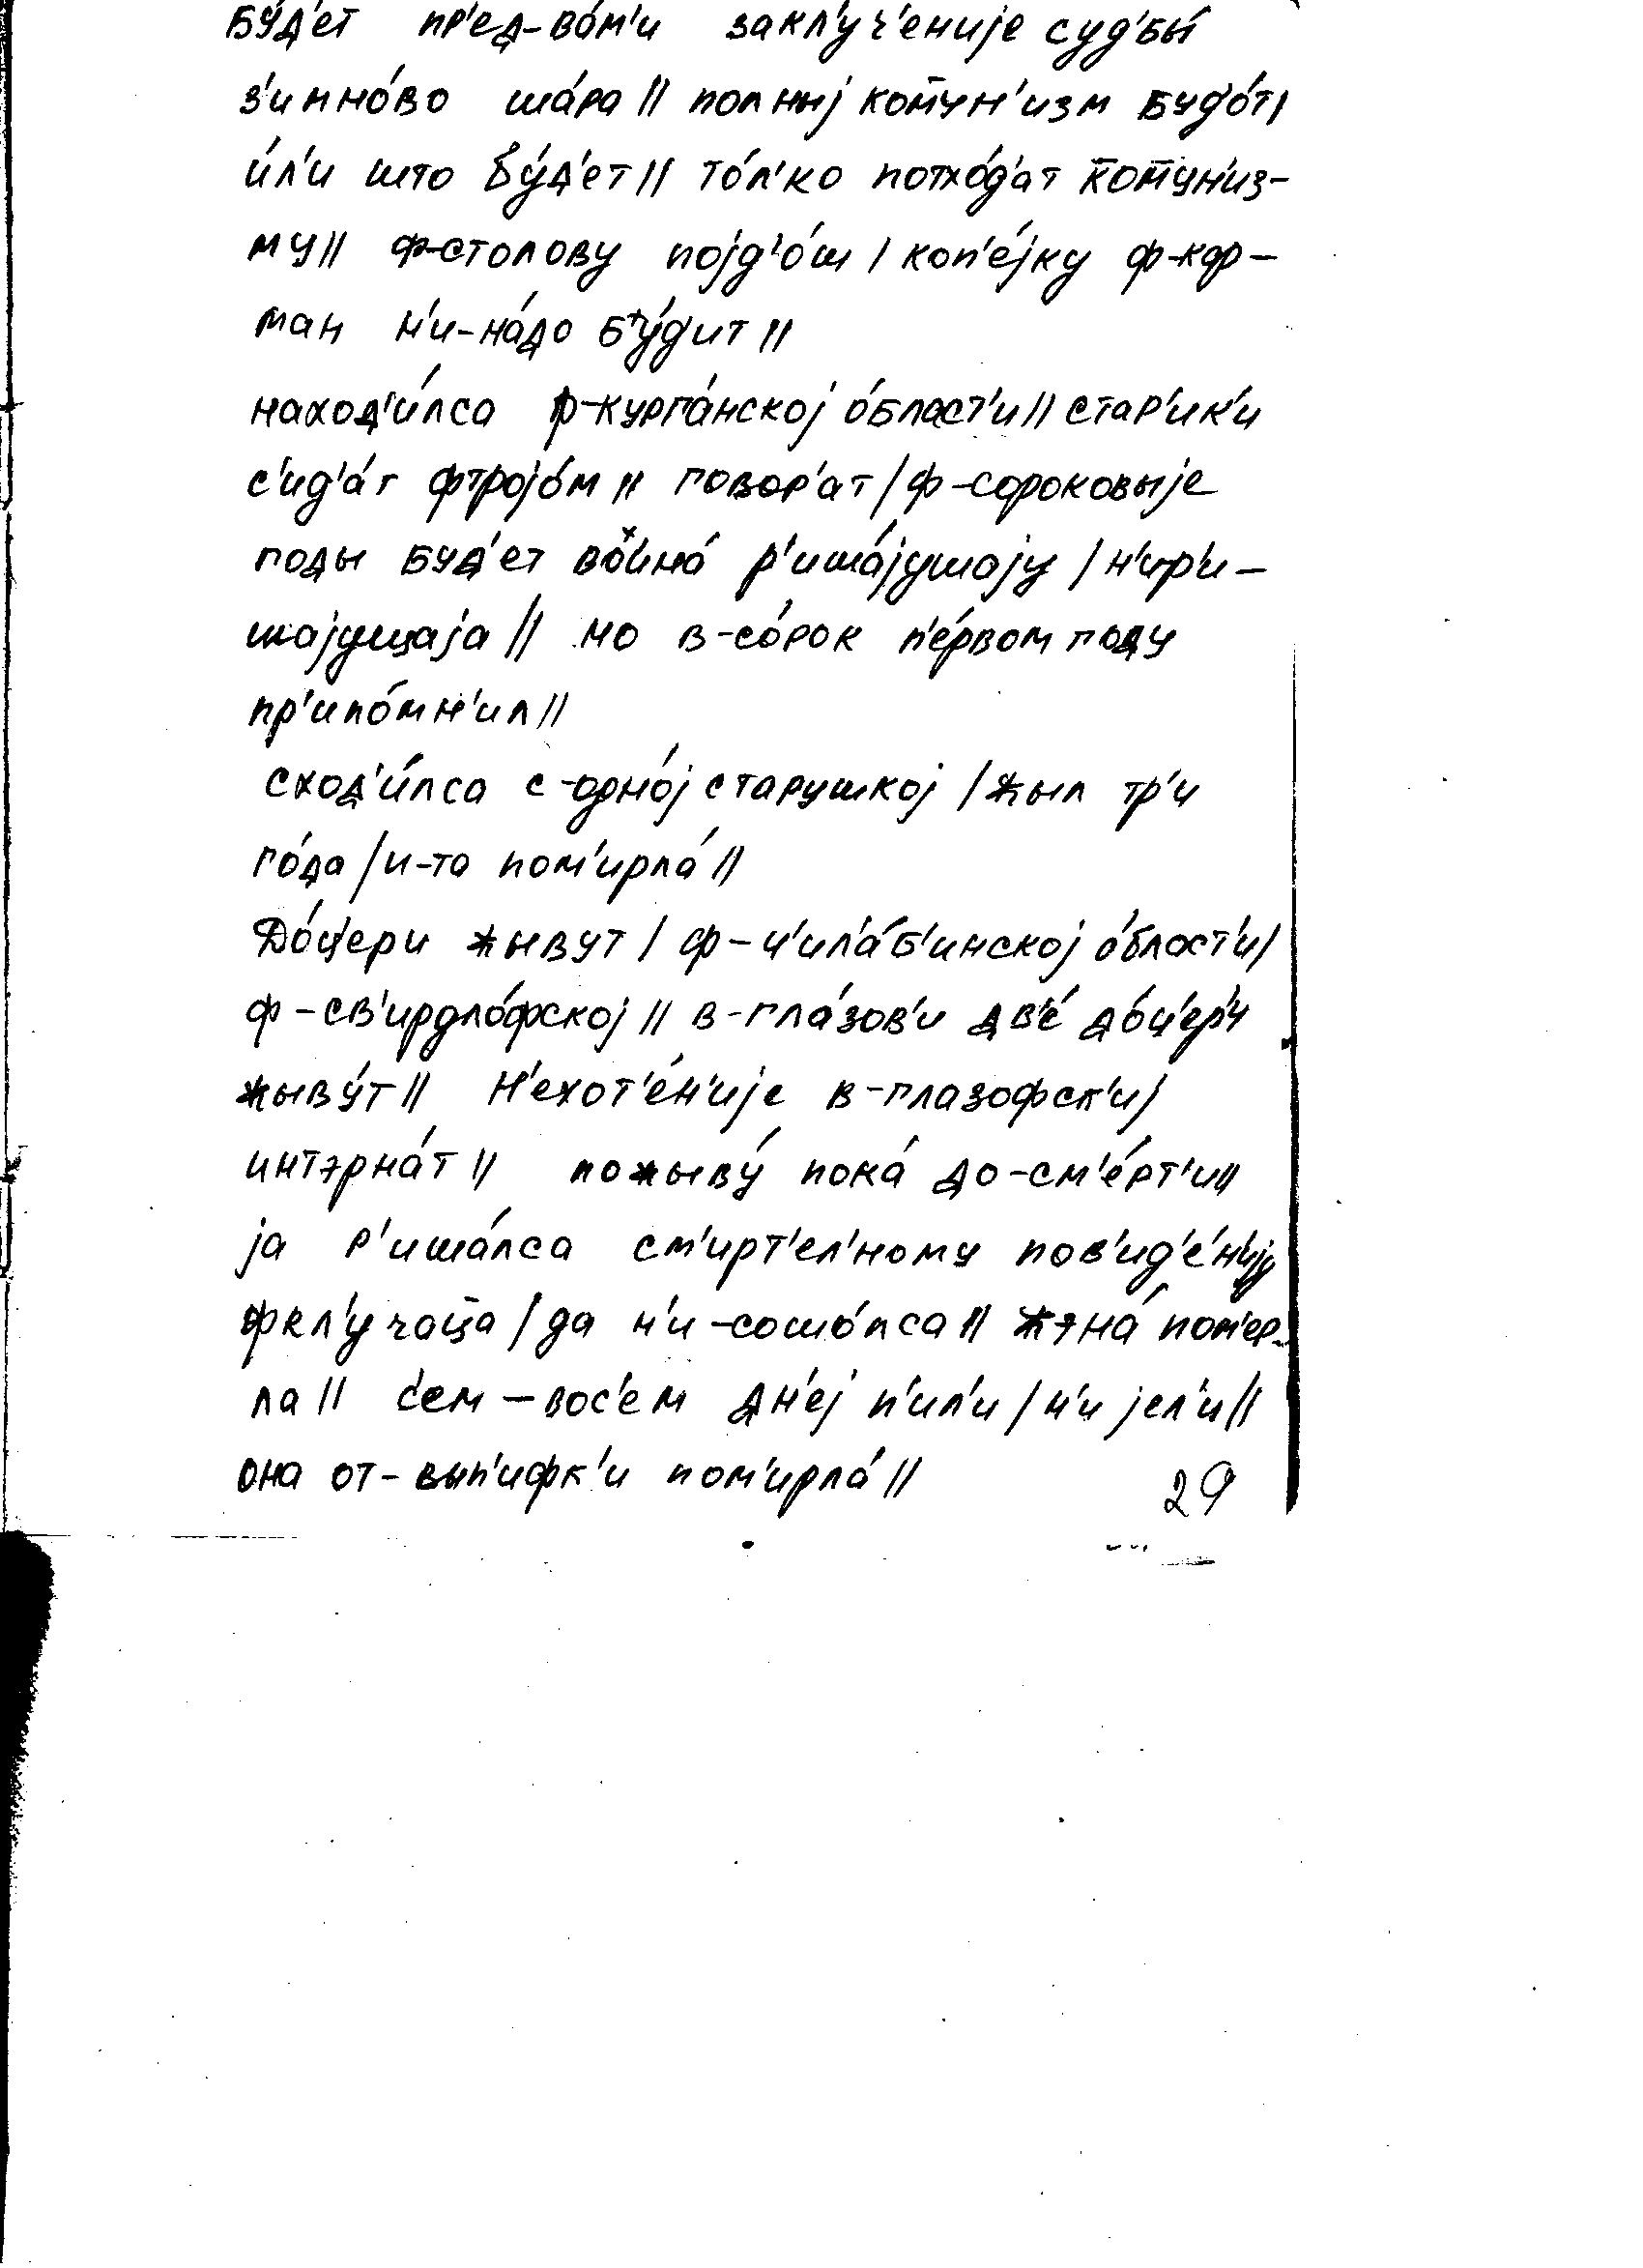 бу́д'ет пр'ед-во́м'и закл'уч'ениjе суд'бы́
з'имно́во ша́ра || полныj ком̄ун'изм буд'о́т |
и́л'и што бу́д'ет || то́л'ко потхо́д'ат ком̄ун'из-
му || ф-столову поjд'о́ш | коп'е́jку ф-кар-
ман н'и-на́до бу́дит ||
наход'и́лса ф-курга́нскоj о́бласт'и || стар'ик'и
с'ид'а́т фтроjо́м || говор'ат | ф-сороковыjе
годы буд'ет воина́ р'иша́jушаjу | н'ир'и-
шаjущаjа || но в-со́рок п'е́рвом году
пр'ипо́мн'ил ||
сход'и́лса с-одно́j старушкоj | жыл тр'и
го́да | и-та пом'ирла́ ||
До́ц'ери жывут | ф-ч'ил'а́б'инскоj о́бласт'и |
ф-св'ирдло́фскоj || в-гла́зов'и дв'е́ до́ц'ер'и
жыву́т || н'ехот'е́н'иjе в-глазофск'и |
интэрна́т || пожыву́ пока́ до-см'е́рт'и ||
jа р'иша́лса см'ирт'ел'ному пов'ид'е́н'иjу
фкл'учац̄а | да н'и-сошо́лса || жэна́ пом'ер-
ла || с'ем — вос'ем дн'еj п'ил'и | н'и jел'и ||
она от-вып'ифк'и пом'ирла́ ||
29